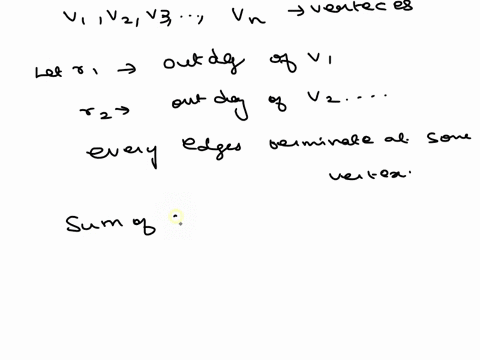 V1, V2, V3, .., Vn → verteces
Let r1 → outdeg of V1
r2 → out deg of V2 ....
every edges terminate at some
vertex.
Sum of